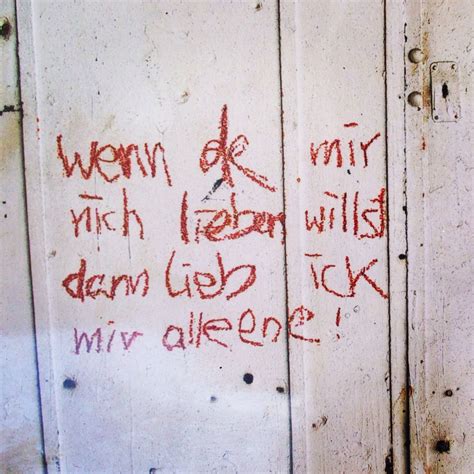 wenn de mir
nich lieben willst
dann lieb ick
mir alleene!